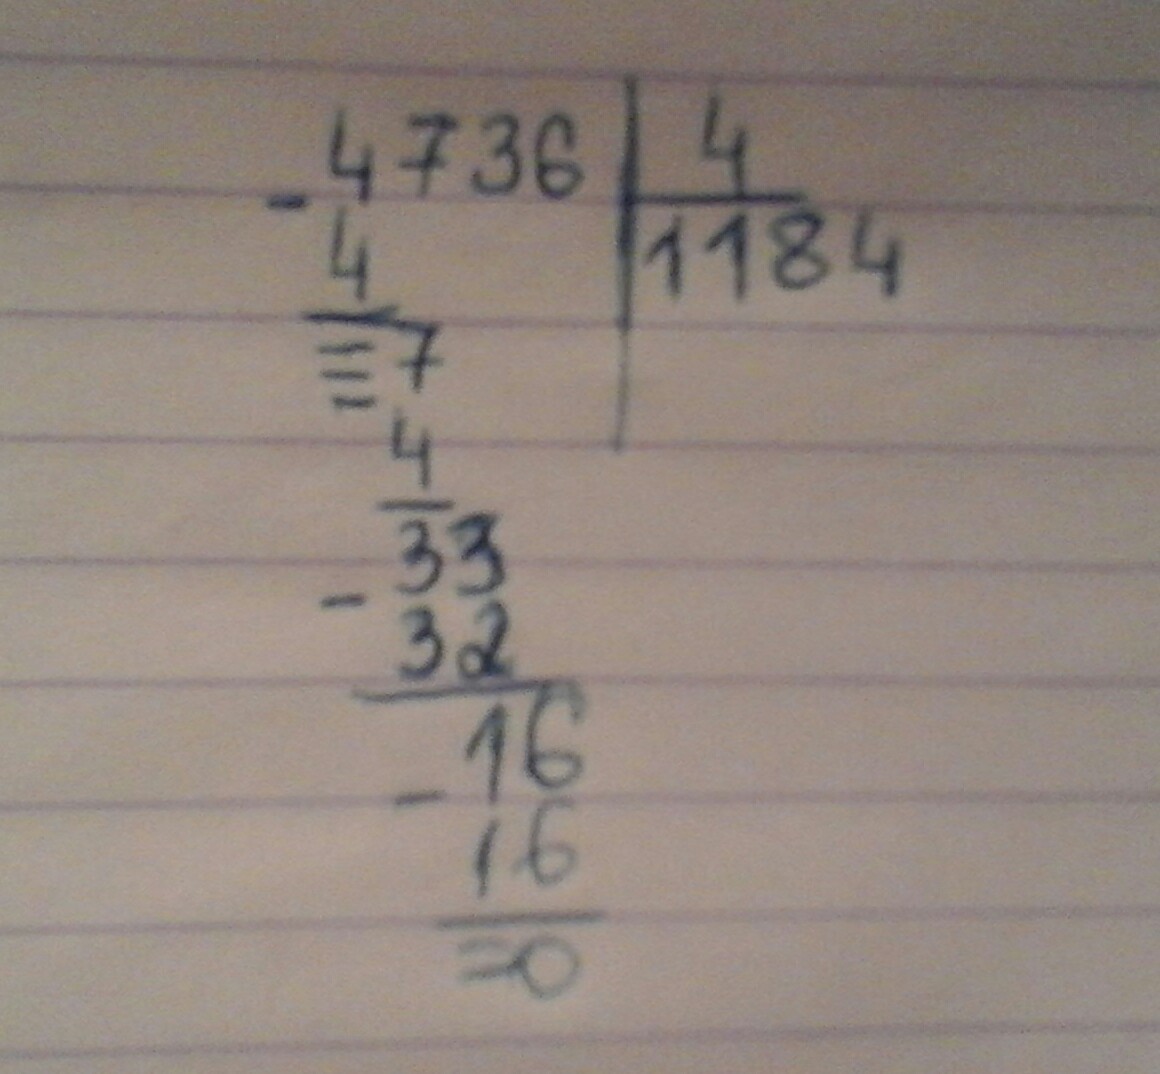 - 4736 | 4
4 | 1184
≡ 7
4
- 33
32
- 16
16
= 0